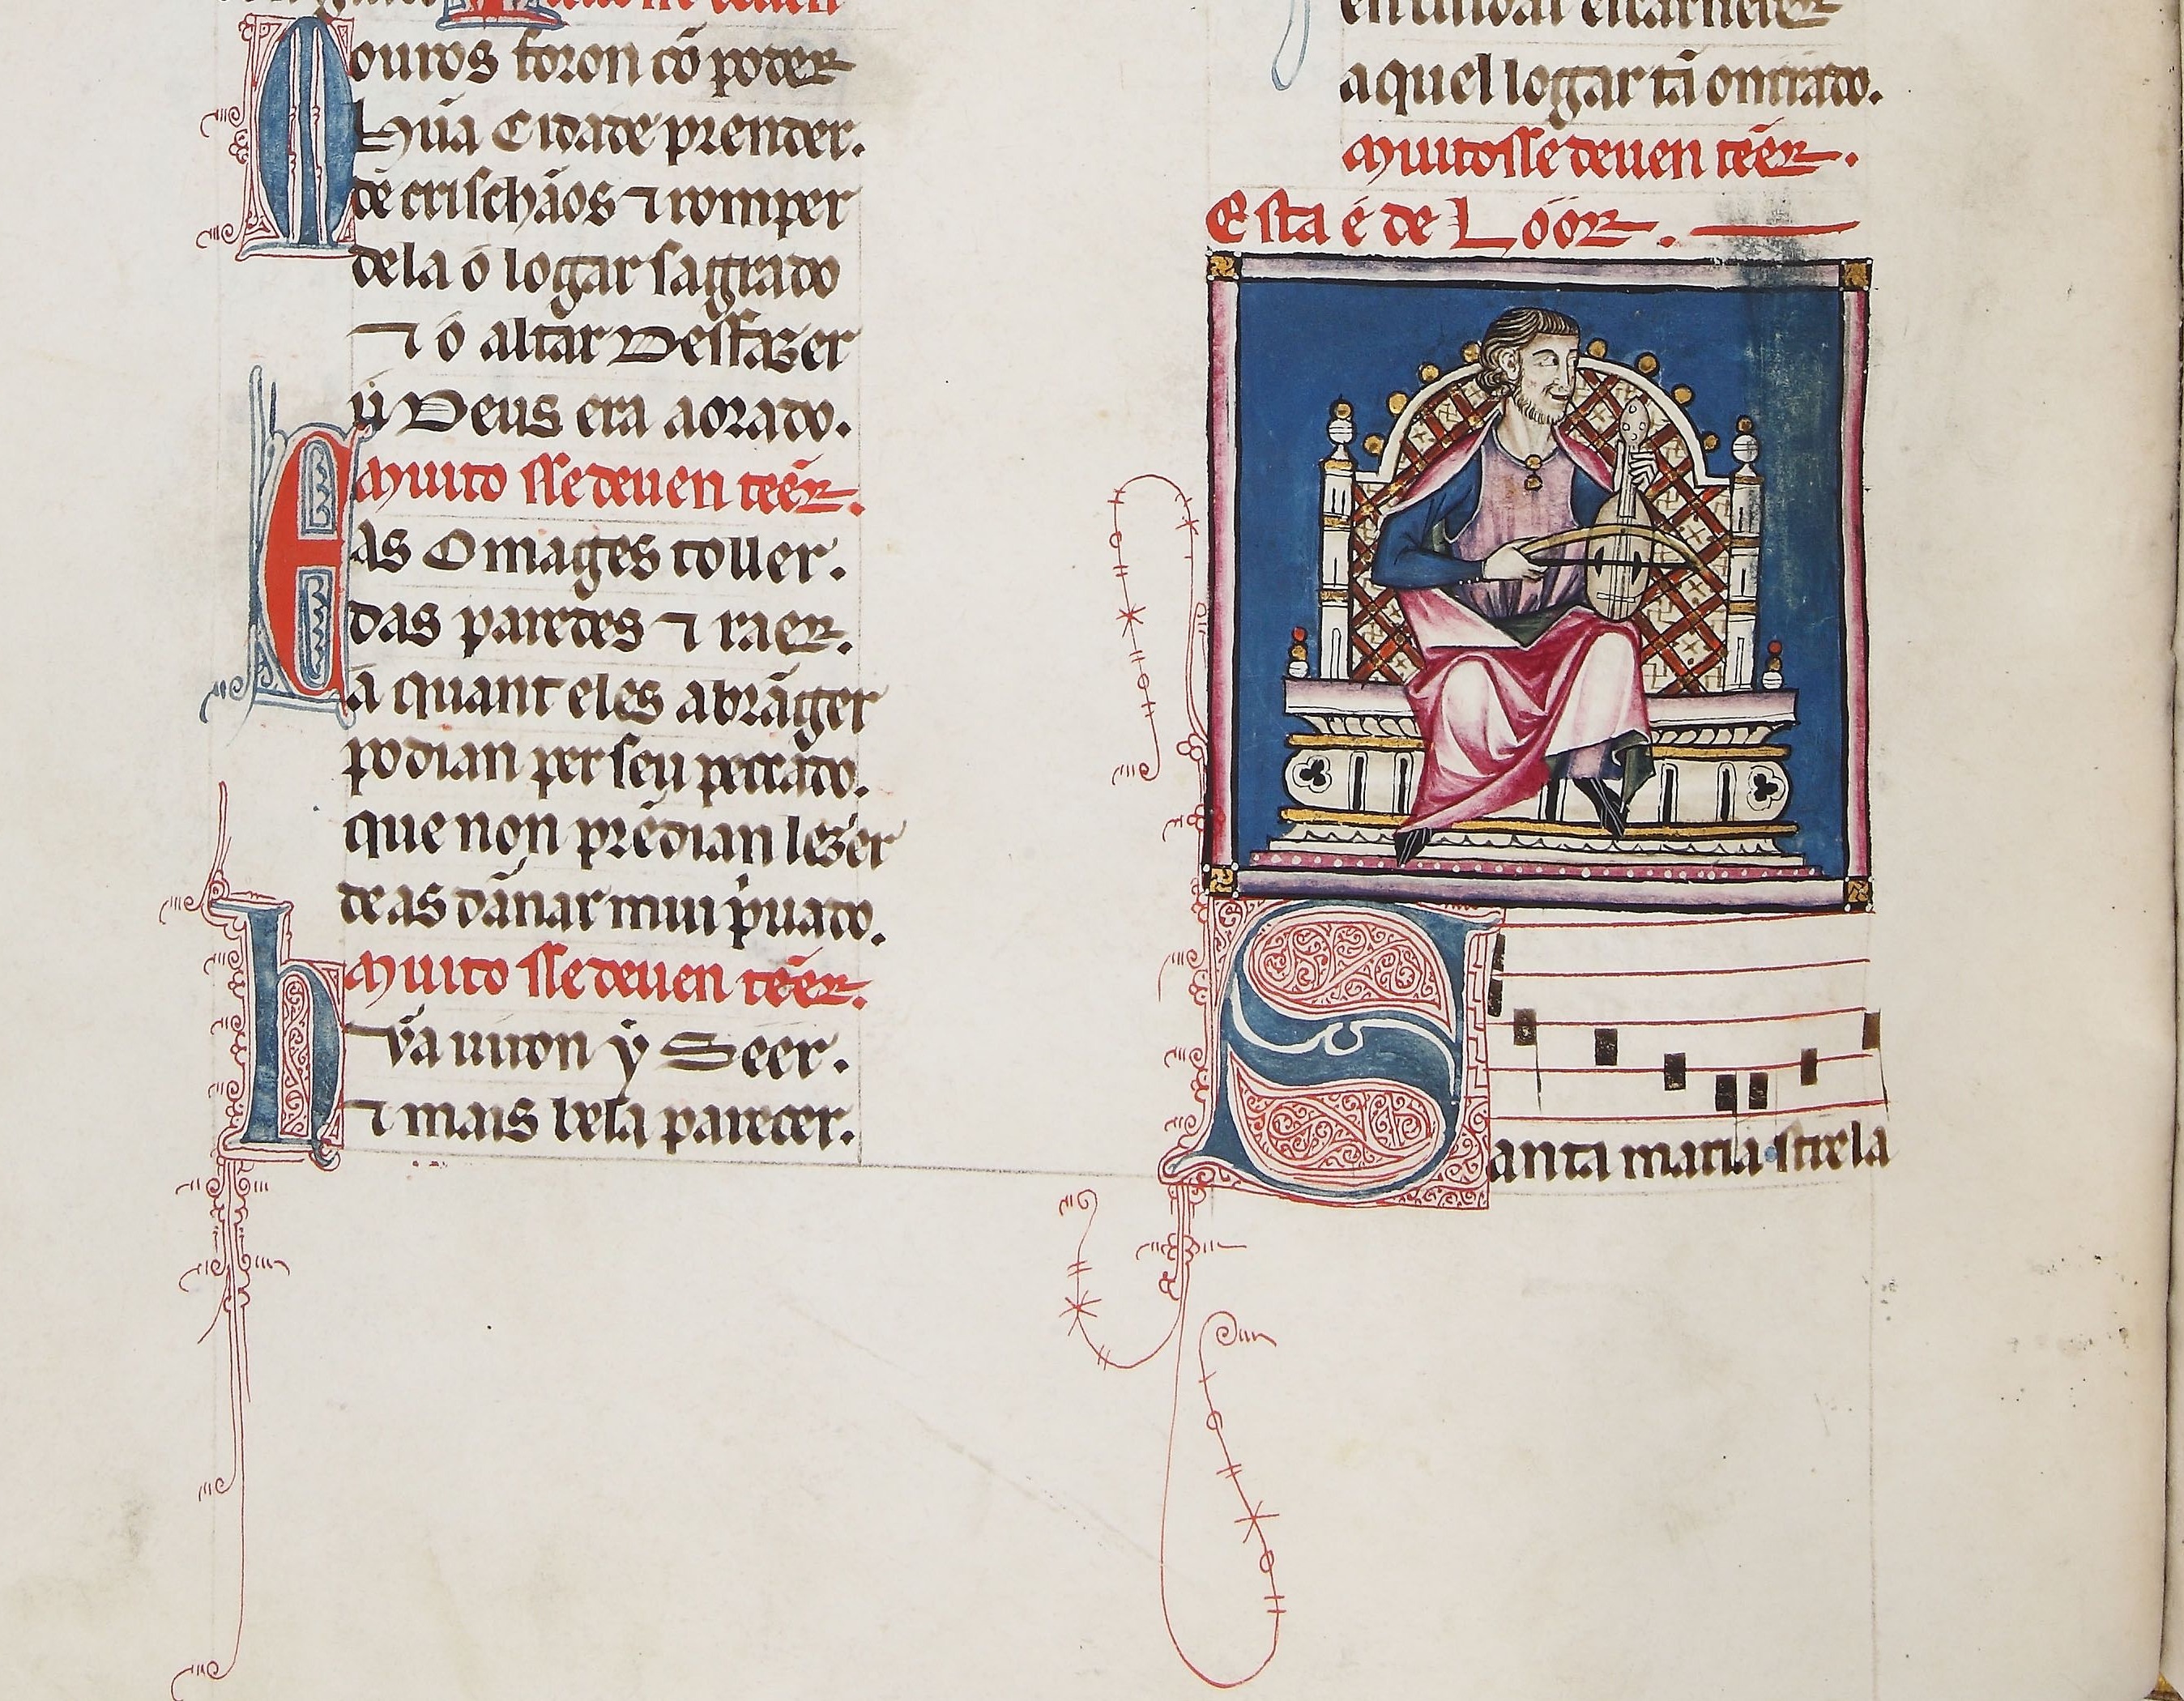 Mouros foron cõ poder
hũa Cidade prender.
de crischãos ⁊ romper
dela o logar sagrado
⁊ o altar Desfazer
ú Deus era aorado.
Muito sse deuen tẽer.
E as Omages toller.
das paredes ⁊ raer.
a quant eles abrãger
podian per seu peccado.
que non prẽdian lezer
de as dãnar mui priuado.
Muito sse deuen tẽer.
hũa uiron y Seer.
⁊ mais bela parecer.
aquel logar tã onrrado.
Muito sse deuen tẽer.
Esta é de Lóor.
Santa maria strela